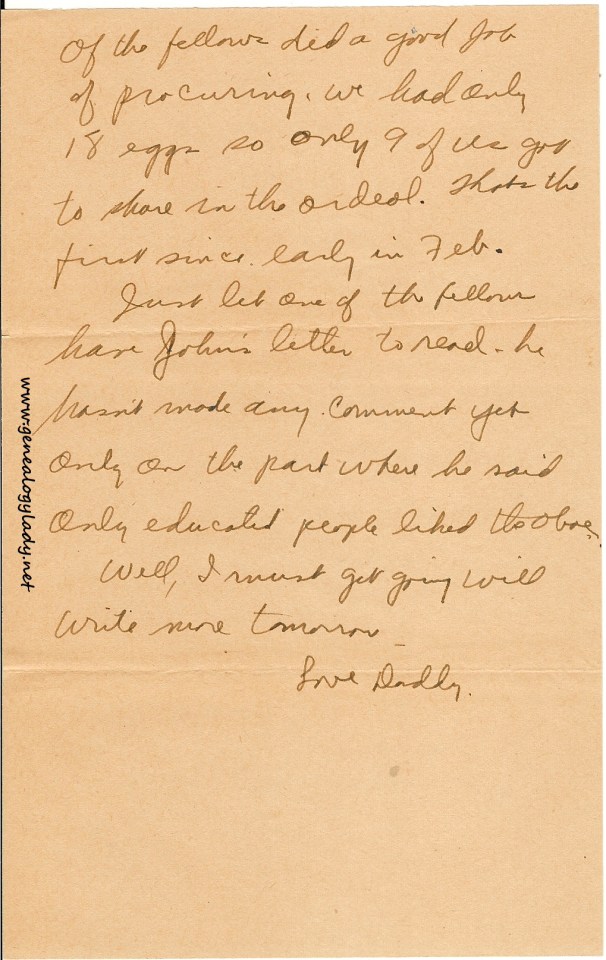 Of the fellows did a good job
of procuring. we had only
18 eggs so only 9 of us got
to share in the ordeal. Thats the
first since early in Feb.
Just let one of the fellows
have John's letter to read - he
hasn't made any comment yet
only on the part where he said
only educated people liked the oboe.
Well, I must get going will
write more tomorrow
Love Daddy.
www.genealogylady.net